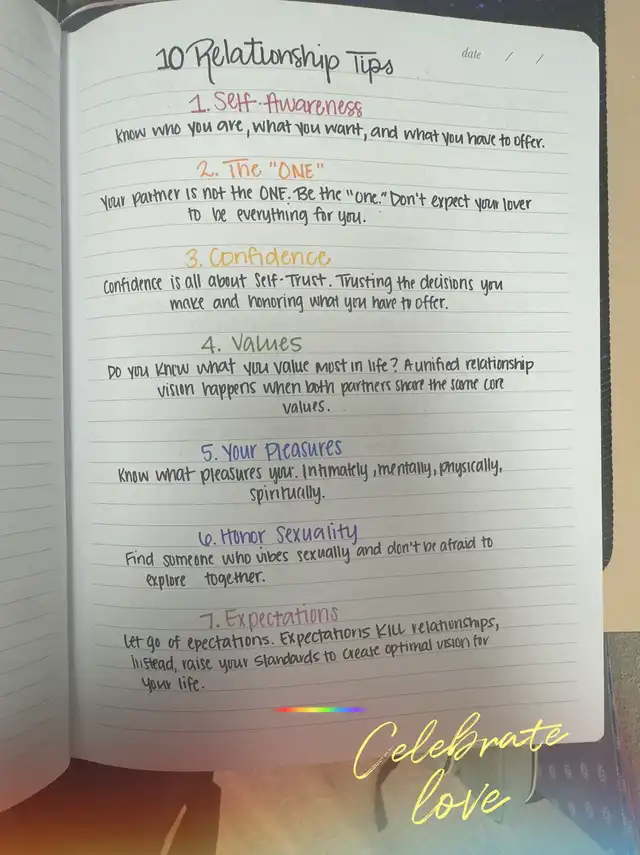 10 Relationship Tips
date / /
1. Self-Awareness
Know who you are, what you want, and what you have to offer.
2. The "ONE"
Your partner is not the ONE. Be the "one." Don't expect your lover
to be everything for you.
3. Confidence
Confidence is all about Self-Trust. Trusting the decisions you
make and honoring what you have to offer.
4. Values
Do you know what you value most in life? A unified relationship
vision happens when both partners share the same core
values.
5. Your Pleasures
Know what pleasures you. Intimately, mentally, physically,
spiritually.
6. Honor Sexuality
Find someone who vibes sexually and don't be afraid to
explore together.
7. Expectations
Let go of epectations. Expectations KILL relationships,
Instead, raise your standards to create optimal vision for
your life.
Celebrate
love